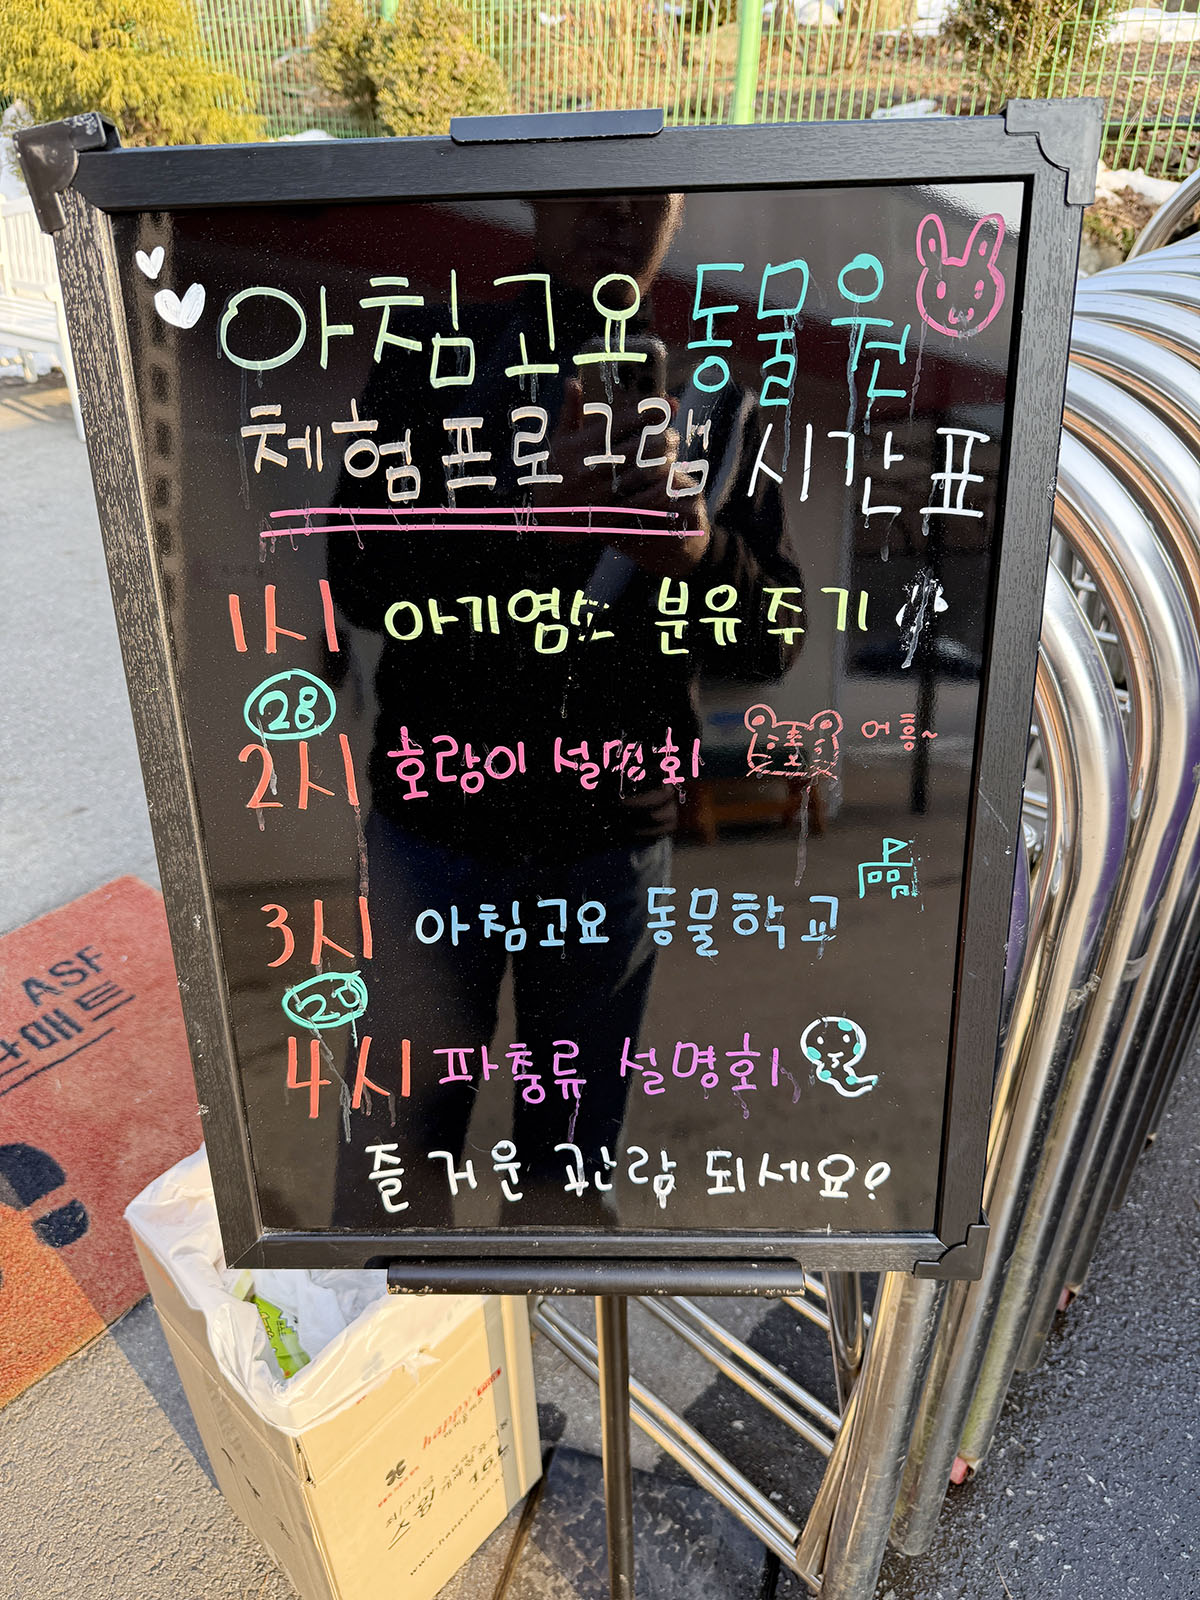 아침고요 동물원
체험프로그램 시간표
1시 아기염소 분유주기
28
2시 호랑이 설명회 어흥~
3시 아침고요 동물학교
20
4시 파충류 설명회
즐거운 관람 되세요?
ASF
매트
happy